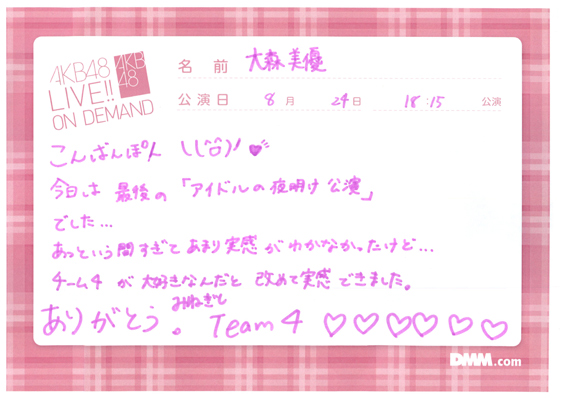 AKB48
LIVE!!
ON DEMAND
AKB
48
名前 大森美優
公演日 8月 24日 18:15 公演
こんばんぽん \(^o^)/
今日は 最後の 「アイドルの夜明け 公演」
でした...
あっという間すぎて あまり実感が わかなかったけど...
チーム4 が 大好きなんだと 改めて実感できました。
みねぎし
ありがとう。 Team 4 ♡♡♡♡♡♡
DMM.com